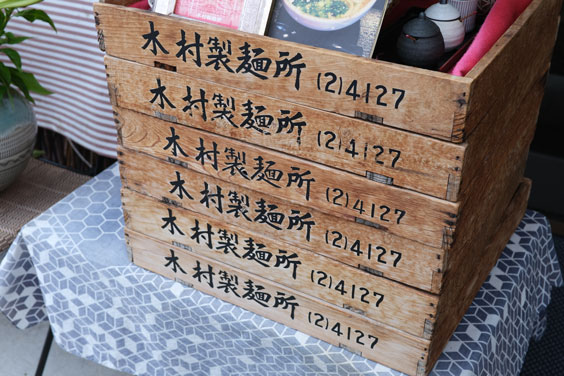 木村製麺所 (2)4127
木村製麺所 (2)4127
木村製麺所 (2)4127
木村製麺所 (2)4127
木村製麺所 (2)4127
木村製麺所 (2)4127